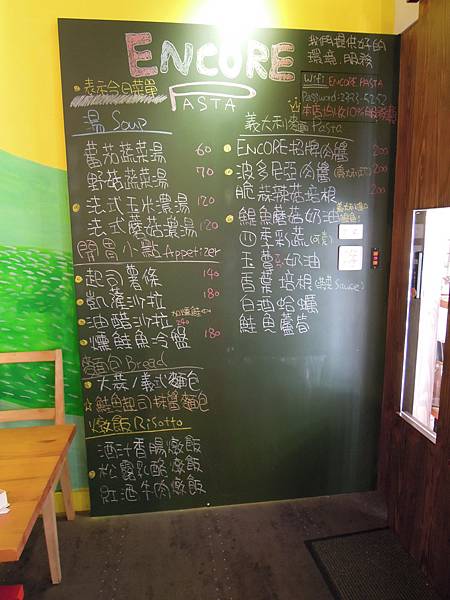 ENCORE
PASTA
表示今日菜單
我們提供好的
環境.服務
Wifi ENCORE PASTA
Password:2333-5252
湯 Soup
蕃茄蔬菜湯 60
野菇蔬菜湯 70
法式玉米濃湯 120
法式蘑菇濃湯 120
開胃小點 Appetizer
起司薯條 140
凱薩沙拉 180
油醋沙拉
240
燻鮭魚冷盤 180
麵包 Bread
大蒜/義式麵包
鮭魚起司抹醬麵包
燉飯 Risotto
酒汁香腸燉飯
松露乳酪燉飯
紅酒牛肉燉飯
義大利麵 Pasta
ENCORE招牌肉醬 200
波多尼亞肉醬 200
脆蒜辣培根 200
鯷魚蘑菇奶油
四季彩蔬
玉蕈奶油
百葉培根
白酒蛤蠣
鮭魚蘆筍